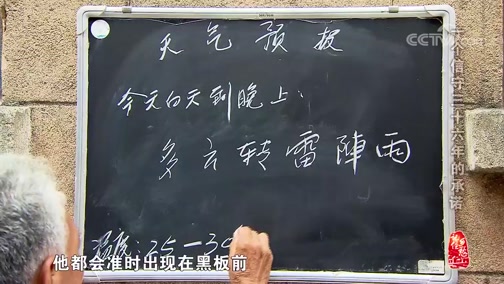 CCTV
天气预报
今天白天到晚上:
多云转雷陣雨
温度:25—3
三十六年的承诺
他都会准时出现在黑板前